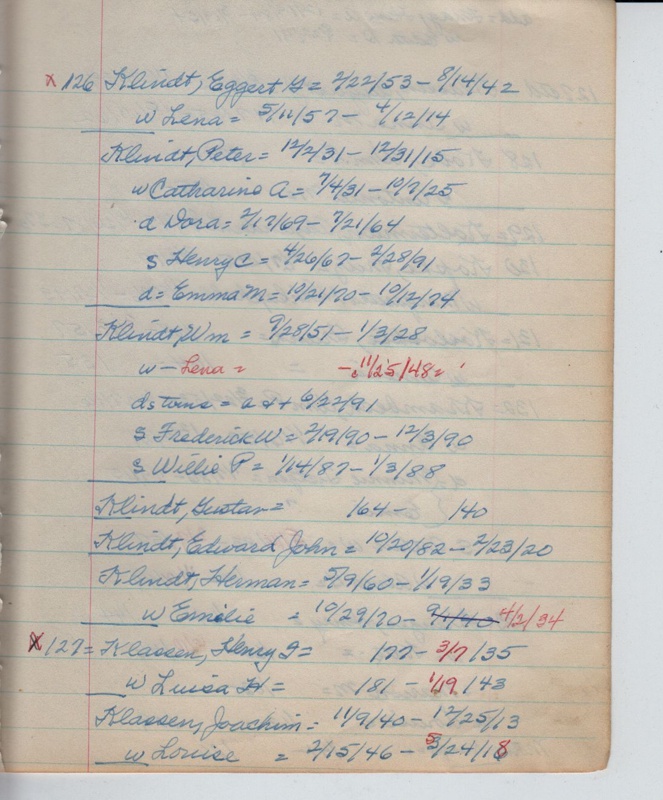 x 126 Klindt, Eggert G = 2/22/53 - 8/14/42
w Lena = 5/11/57 - 4/12/14
Klindt, Peter = 12/2/31 - 12/31/15
w Catharine A = 7/4/31 - 10/7/25
d Dora = 2/17/69 - 7/21/64
s Henry C = 4/26/67 - 2/28/91
d = Emma M = 10/21/70 - 10/12/74
Klindt, Wm = 9/28/51 - 1/3/28
w - Lena = - 11/25/48 =
ds twins = a d + 6/22/91
s Frederick W = 2/19/90 - 12/3/90
s Willie P = 1/14/87 - 1/3/88
Klindt, Gustav = 164 - 140
Klindt, Edward John = 10/20/82 - 2/23/20
Klindt, Herman = 5/9/60 - 1/19/33
w Emilie = 10/29/70 - 9/1/40 4/2/34
x 127 = Klassen, Henry J = 177 - 3/7/35
w Luisa H = 181 - 1/19/43
Klassen, Joachim = 11/9/40 - 12/25/13
w Louise = 2/15/46 - 5/24/18